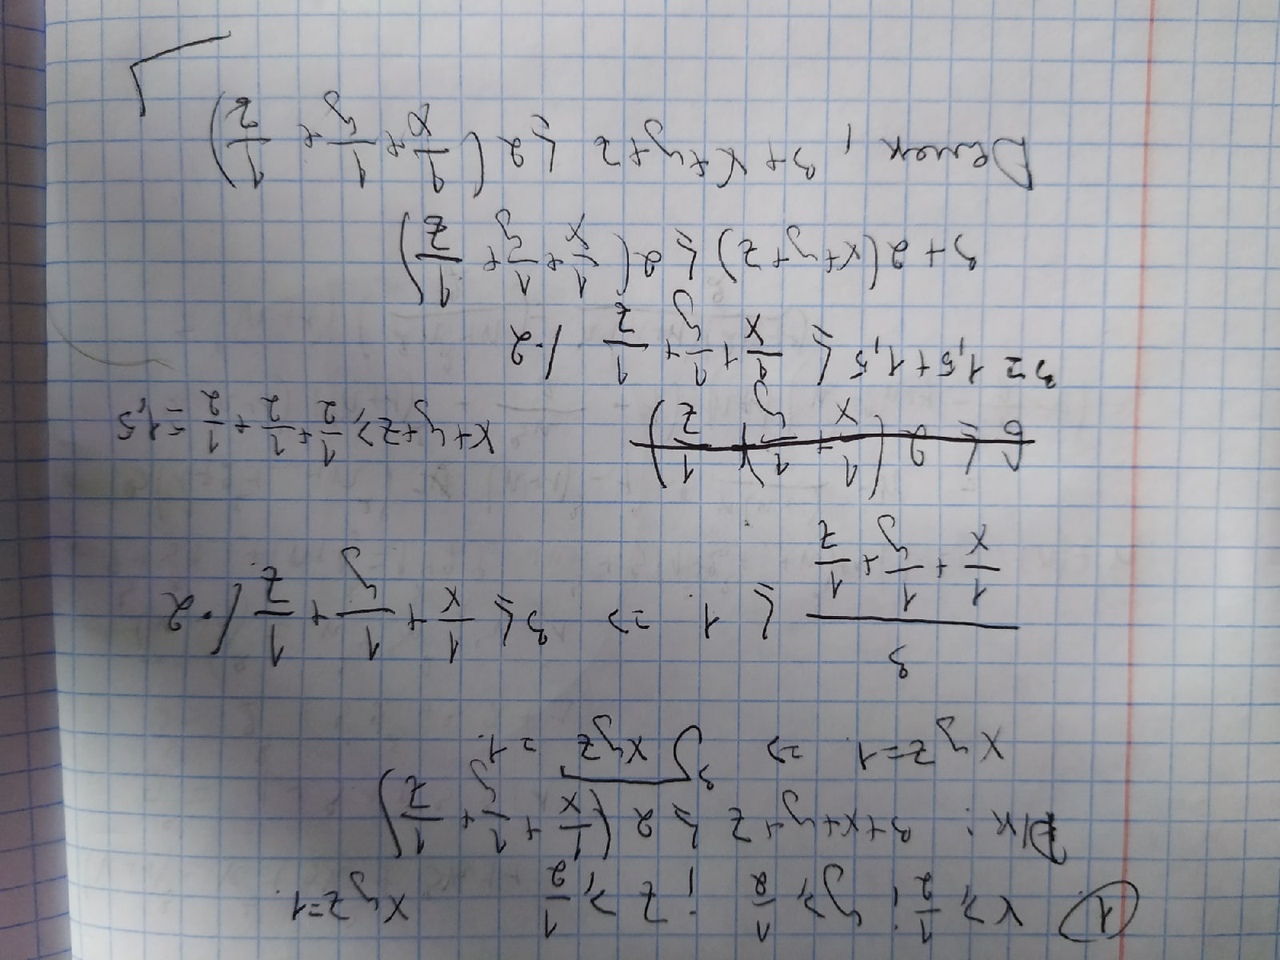 ① x ≥ 1/2; y ≥ 1/2; z ≥ 1/2 xyz=1
D/к: 3+x+y+z ≤ 2(1/x + 1/y + 1/z)
xyz=1 => ∛xyz = 1.
3/(1/x + 1/y + 1/z) ≤ 1 => 3 ≤ 1/x + 1/y + 1/z /·2
6 ≤ 2(1/x + 1/y + 1/z) x+y+z ≥ 1/2 + 1/2 + 1/2 = 1,5
3 = 1,5+1,5 ≤ 1/x + 1/y + 1/z /·2
3+2(x+y+z) ≤ 2(1/x + 1/y + 1/z)
Демек, 3+x+y+z ≤ 2(1/x + 1/y + 1/z)